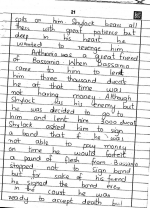 21
spits on him Shylock bears all
this with great patience but
deep in his heart he
wanted to revenge him.
Anthonio was a great friend
of Bassanio. When Bassanio
came to him to lent
him three thousand ducats
he at that time was
not having money Although
Shylock was his enemy but
he was decided to go to
him and lent him 3000 ducat
Shylock asked him to sign
a bond that if he was
not able to pay money
on time he would forfeit
a pound of flesh from Bassanio
stopped not to sign bond
but for sake of his friend
he signed the bond
in the court he was
ready to accept death but